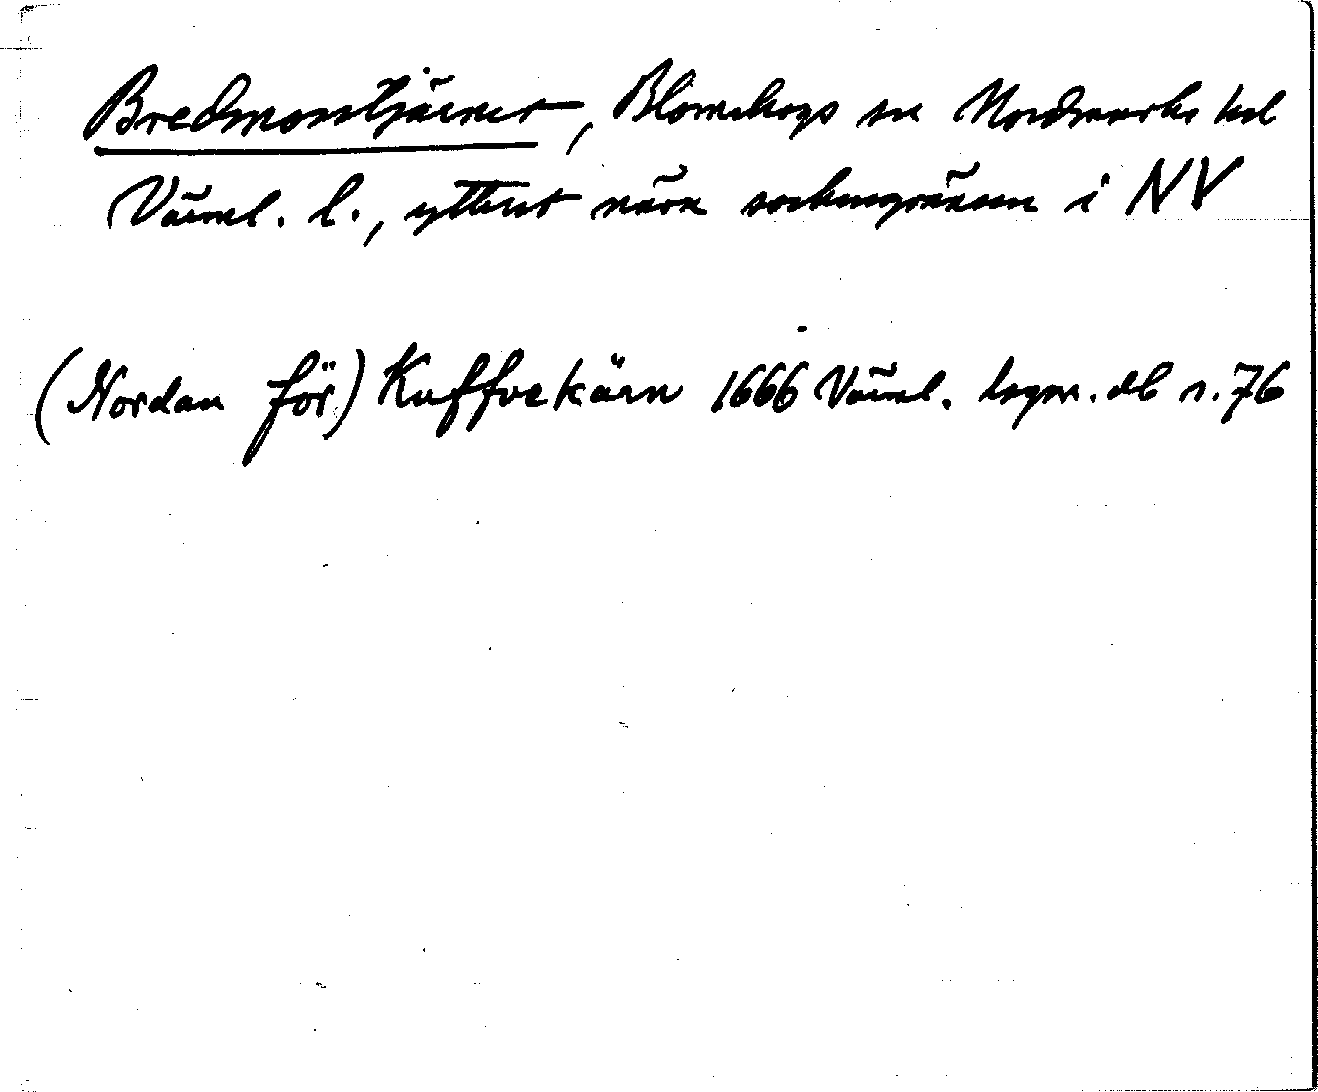 Bredmosstjärnet, Blomskogs sn Nordmarks hd
Värml. l., ytterst nära sockengränsen i NV
(Nordan för) Kaffvekärn 1666 Värml. lagm. db s. 76